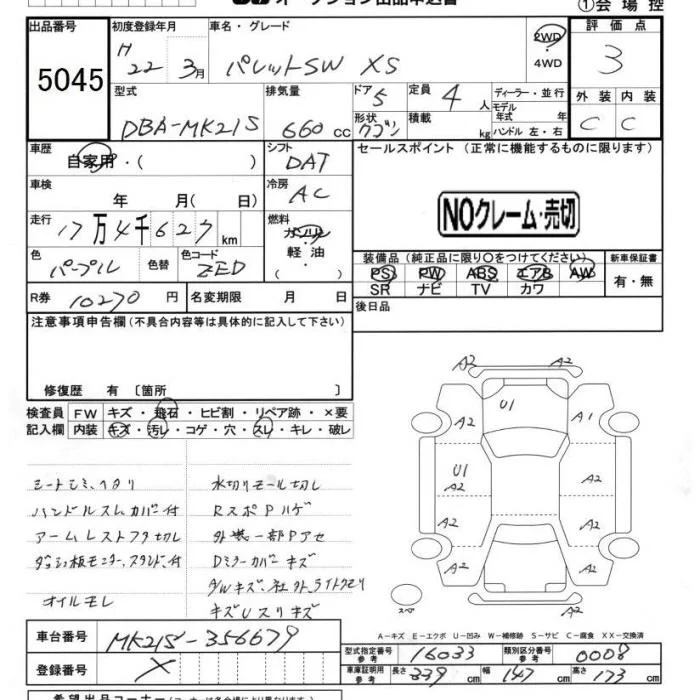 オークション出品申込書
①会場控
出品番号 初度登録年月 車名・グレード 評価点
5045 H22 3月 パレットSW XS 2WD 4WD 3
型式 排気量 ドア 5 定員 4人 ディーラー・並行 外装 内装
DBA-MK21S 660cc 形状 積載 kg モデル年式 年 ハンドル 左・右 C C
車歴 シフト セールスポイント(正常に機能するものに限ります)
自家用・( ) DAT
車検 冷房
年 月( 日) AC NOクレーム・売切
走行 燃料
17万4千627km ガソリン 軽油・ 装備品(純正品に限り○をつけてください) 新車保証書
色 色替 色コード PS PW ABS エアB AW 有・無
パープル ZED SR ナビ TV カワ
R券 10270円 名変期限 月 日 後日品
注意事項申告欄(不具合内容等は具体的に記入して下さい)
修復歴 有〔箇所 〕
検査員 FW キズ・飛石・ヒビ割・リペア跡・×要
記入欄 内装 キズ・汚レ・コゲ・穴・スレ・キレ・破レ
A2 A2
U1
A2 A1
U1
A2 A2
A2 A2
A2 A2
A2
スペ
シートシミ、ヘタリ 水切りモール切レ
ハンドルスレ、カバー付 RスポPハゲ
アームレストフタ切レ 外機一部Pアセ
ダッシュ板モニター、スタンド付 Dミラーカバーキズ
A/Wキズ、社外、ライトクモリ
オイルモレ キズUスリキズ
A-キズ E-エクボ U-凹み W-補修跡 S-サビ C-腐食 XX-交換済
車台番号 MK21S-356679 型式指定番号 参考 16033 類別区分番号 参考 0008
登録番号 X 車庫証明用 参考 長さ 339 幅 147 高さ 173
希望出品コーナー